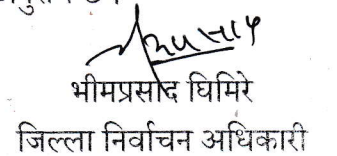 भीमप्रसाद घिमिरे
जिल्ला निर्वाचन अधिकारी